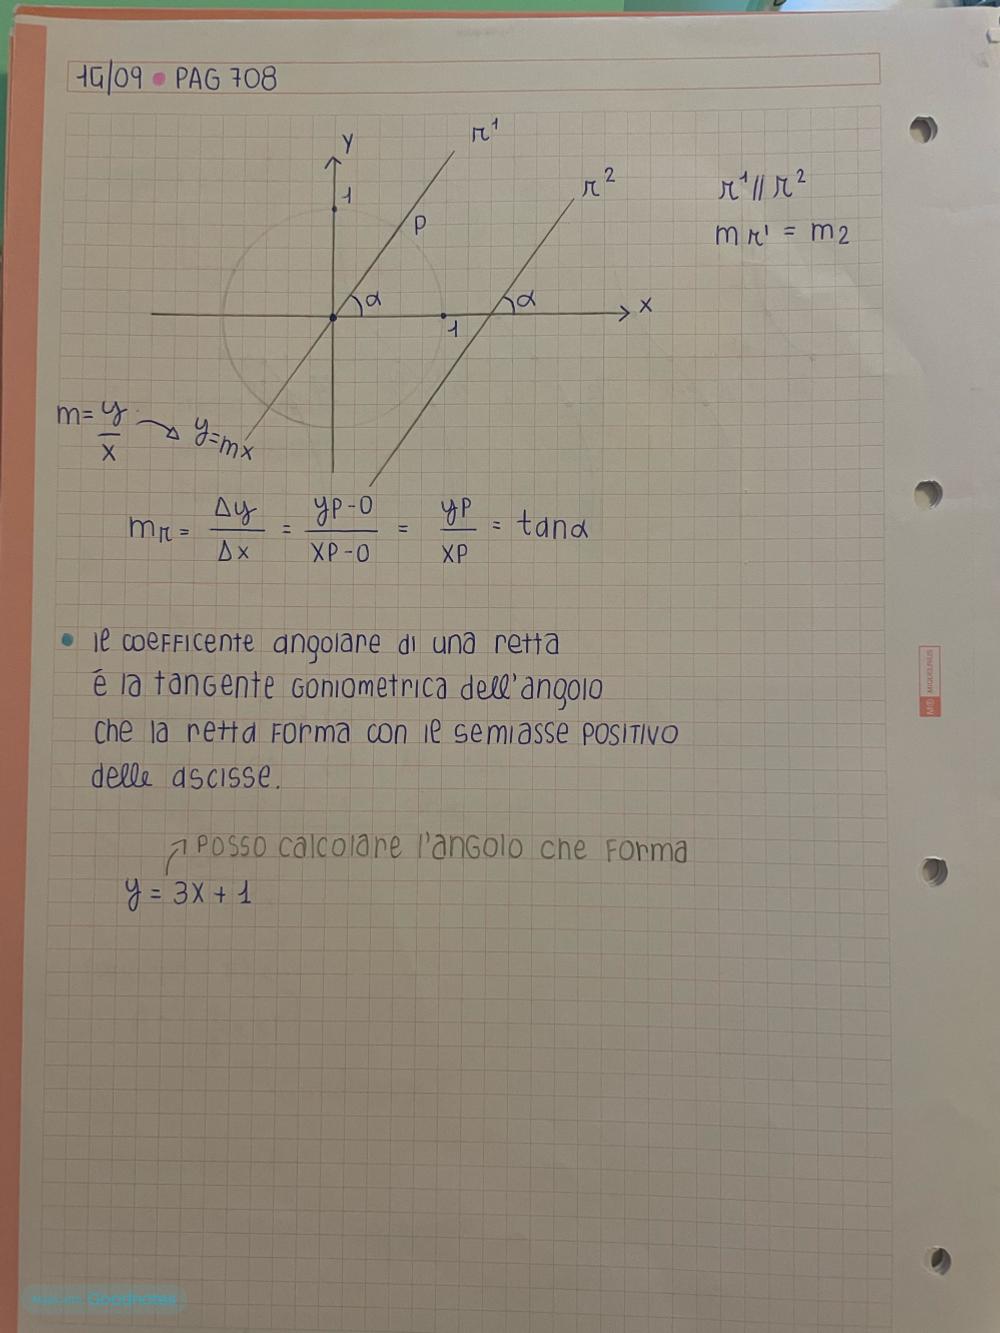 14/09 • PAG 708
y
r¹
1
r²
r¹ // r²
P
m r¹ = m2
α
α
x
1
m = y/x → y=mx
mr = Δy/Δx = yP-0/xP-0 = yP/xP = tanα
• il coefficente angolare di una retta
é la tangente goniometrica dell'angolo
che la retta forma con il semiasse POSITIVO
delle ascisse.
posso calcolare l'angolo che forma
y = 3x + 1
Goodnotes